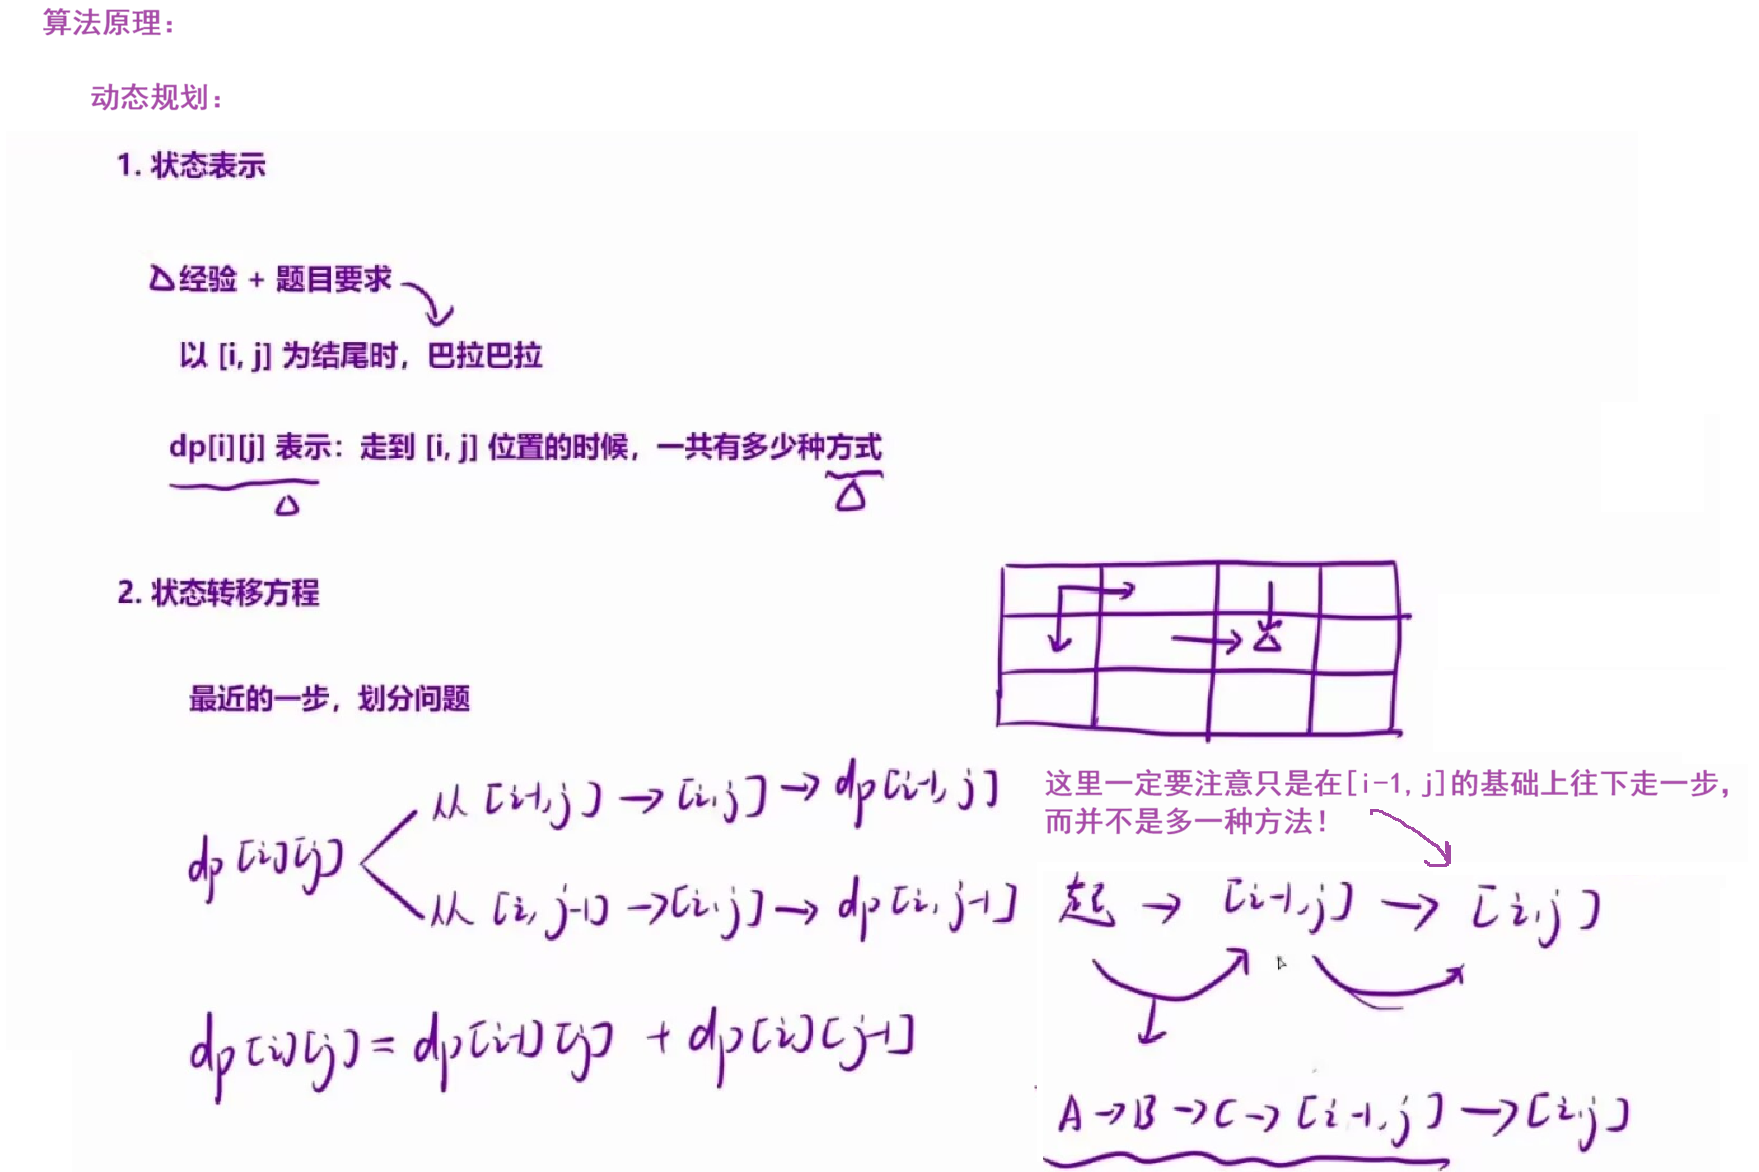 算法原理：
动态规划：
1. 状态表示
△经验 + 题目要求
以 [i, j] 为结尾时，巴拉巴拉
dp[i][j] 表示：走到 [i, j] 位置的时候，一共有多少种方式
△ △
2. 状态转移方程
△
最近的一步，划分问题
从 [i-1, j] → [i, j] → dp[i-1, j]
这里一定要注意只是在[i-1,j]的基础上往下走一步，
而并不是多一种方法！
dp[i][j]
从 [i, j-1] → [i, j] → dp[i, j-1]
起 → [i-1, j] → [i, j]
dp[i][j] = dp[i-1][j] + dp[i][j-1]
A → B → C → [i-1, j] → [i, j]